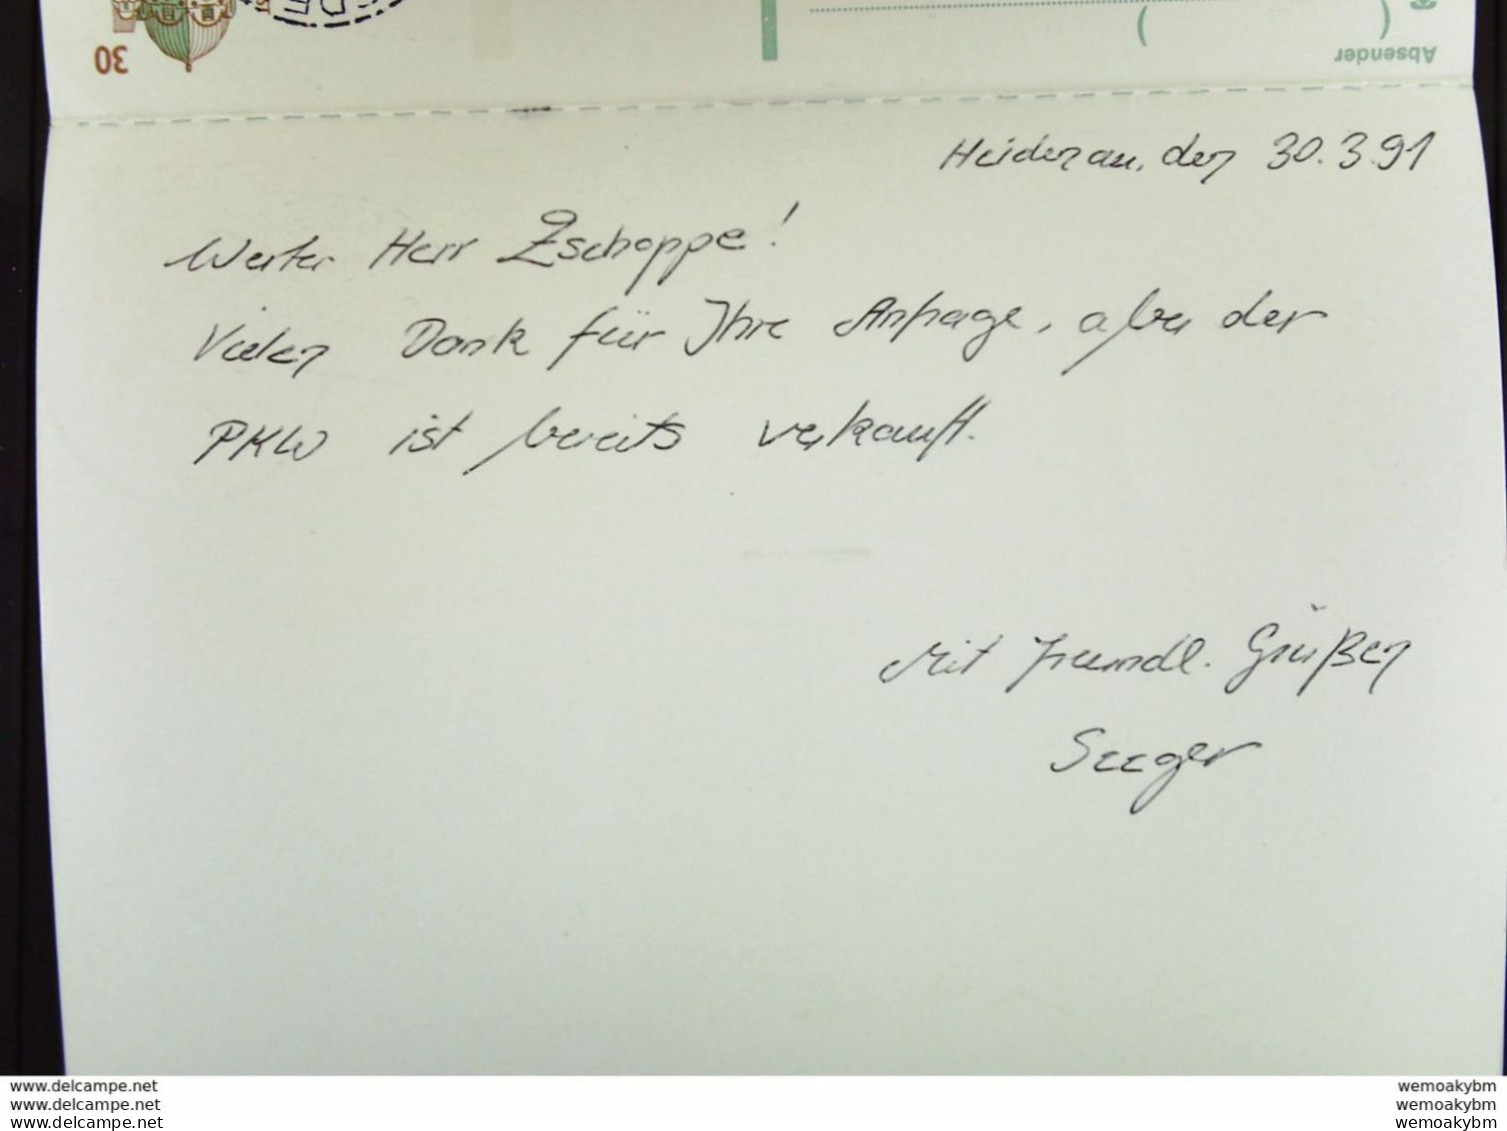 30
Absender
Heidenau, den 30.3.91
Werter Herr Zschoppe!
Vielen Dank für Ihre Anfrage, aber der
PKW ist bereits verkauft.
Mit freundl. Grüßen
Seeger
www.delcampe.net
www.delcampe.net
www.delcampe.net
wemoakybm
wemoakybm
wemoakybm